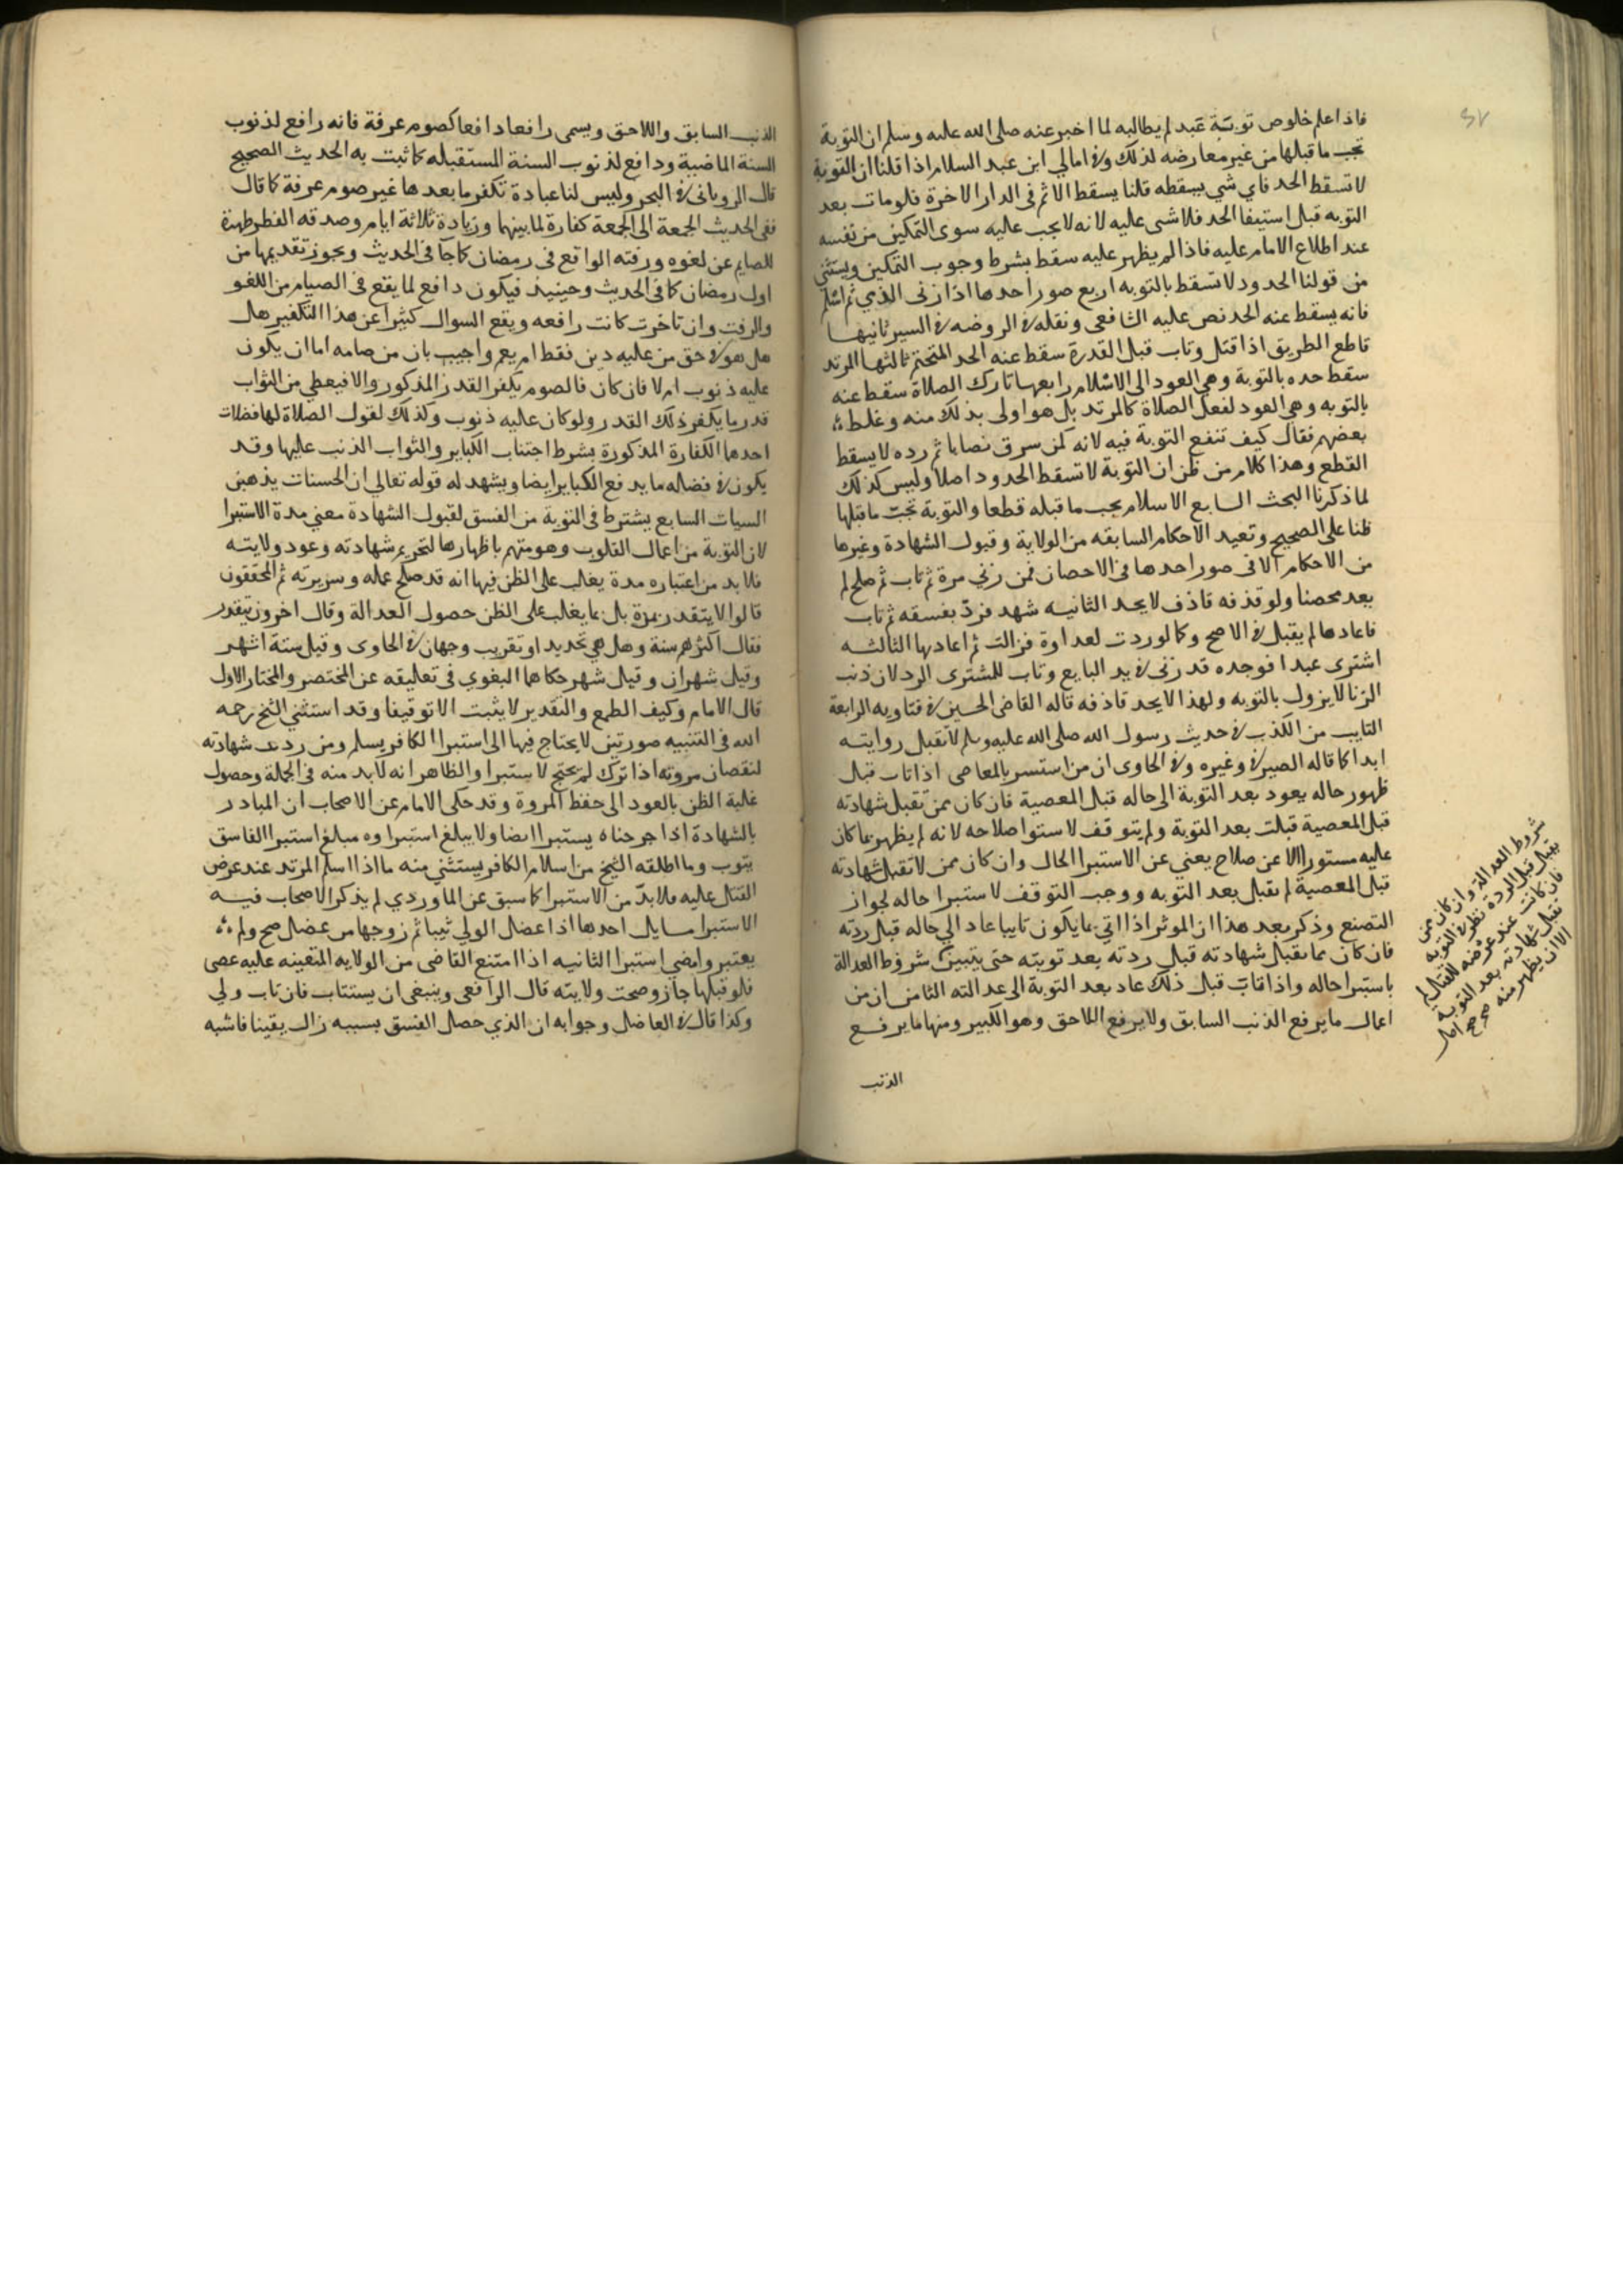 ٢٧
فاذا علم خلوص توبة عبد لم يطالبه لما اخبر عنه صلى الله عليه وسلم ان التوبة
تجب ما قبلها من غير معارضه لذلك وفي امالي ابن عبد السلام اذا قلنا ان التوبة
لا تسقط الحد فاي شي يسقطه قلنا يسقط الاثم في الدار الاخرة فلو مات بعد
التوبه قبل استيفا الحد فلا شى عليه لانه لا يجب عليه سوى التمكين من نفسه
عند اطلاع الامام عليه فاذا لم يظهر عليه سقط بشرط وجوب التمكين ويستثني
من قولنا الحدود لا تسقط بالتوبه اربع صور احدها اذا زنى الذمي ثم اسلم
فانه يسقط عنه الحد نص عليه الشافعى ونقله في الروضه في السير ثانيها
قاطع الطريق اذا قتل وتاب قبل القدرة سقط عنه الحد المتحتم ثالثها المرتد
سقط حده بالتوبة وهي العود الى الاسلام رابعها تارك الصلاة سقط عنه
بالتوبه وهي العود لفعل الصلاة كالمرتد بل هو اولى بذلك منه وغلط
بعضهم فقال كيف تنفع التوبة فيه لانه كمن سرق نصابا ثم رده لا يسقط
القطع وهذا كلام من ظن ان التوبة لا تسقط الحدود اصلا وليس كذلك
لما ذكرنا البحث السابع الاسلام يجب ما قبله قطعا والتوبة تجب ما قبلها
ظنا على الصحيح وتعيد الاحكام السابقه من الولاية وقبول الشهادة وغيرها
من الاحكام الا في صور احدها في الاحصان فمن زني مرة ثم تاب ثم صلح لم
يعد محصنا ولو قذفه قاذف لا يحد الثانيه شهد فرد بفسقه ثم تاب
فاعادها لم يقبل في الاصح وكما لو ردت لعداوة فزالت ثم اعادها الثالثه
اشترى عبدا فوجده قد زنى في يد البايع وتاب للمشترى الرد لان ذنب
الزنا لا يزول بالتوبه ولهذا لا يحد قاذفه قاله القاضى الحسين في فتاويه الرابعة
التايب من الكذب في حديث رسول الله صلى الله عليه وسلم لا تقبل روايته
ابدا كما قاله الصيرفي وغيره وفي الحاوى ان من استسر بالمعاصى اذا تاب قبل
ظهور حاله يعود بعد التوبة الى حاله قبل المعصية فان كان ممن تقبل شهادته
قبل المعصية قبلت بعد التوبة ولم يتوقف لاستوا صلاحه لانه لم يظهر ما كان
عليه مستورا الا عن صلاح يعني عن الاستبرا الحال وان كان ممن لا تقبل شهادته
قبل المعصية لم تقبل بعد التوبه ووجب التوقف لاستبرا حاله لجواز
التصنع وذكر بعد هذا ان الموثر اذا اتي بما يكون تايبا عاد الي حاله قبل ردته
فان كان مما تقبل شهادته قبل ردته بعد توبته حتى يتبين شروط العدالة
باستبرا حاله واذا تاب قبل ذلك عاد بعد التوبة الى عدالته الثامن ان من
اعمال ما يرفع الذنب السابق ولا يرفع اللاحق وهو الكبير ومنها ما يرفع
الذنب
شروط العدالة وان كان ممن
يقبل قبل الردة نظر في التوبه
فان كانت عند عرضه للقتال لم
تقبل شهادته بعد التوبة
الا ان يظهر منه
الذنب السابق واللاحق ويسمى رافعا دافعا كصوم عرفة فانه رافع لذنوب
السنة الماضية ودافع لذنوب السنة المستقبله كما ثبت به الحديث الصحيح
قال الروياني في البحر وليس لنا عبادة تكفر ما بعدها غير صوم عرفة كما قال
ففي الحديث الجمعة الى الجمعة كفارة لما بينهما وزيادة ثلاثة ايام وصدقه الفطر طهرة
للصايم عن لغوه ورفثه الواقع في رمضان كما جآ في الحديث ويجوز تقديمها من
اول رمضان كما في الحديث وحينيذ فيكون دافع لما يقع في الصيام من اللغو
والرفث وان تاخرت كانت رافعه ويقع السوال كثيرا عن هذا التكفير هل
هل هو في حق من عليه دين فقط ام يعم واجيب بان من صامه اما ان يكون
عليه ذنوب ام لا فان كان فالصوم يكفر القدر المذكور والا فيعطي من الثواب
قدر ما يكفر ذلك القدر ولو كان عليه ذنوب وكذلك لقول الصلاة لها فضلات
احدها الكفارة المذكورة بشرط اجتناب الكباير والثواب الذنب عليها وقد
يكون في فضاله ما يدفع الكباير ايضا ويشهد له قوله تعالي ان الحسنات يذهبن
السيات السابع يشترط في التوبة من الفسق لقبول الشهادة معني مدة الاستبرا
لان التوبة من اعمال القلوب وهو متهم باظهارها لتحريم شهادته وعود ولايته
فلا بد من اعتباره مدة يغلب على الظن فيها انه قد صلح عمله وسريرته ثم المحققون
قالوا لا يتقدر بمدة بل بما يغلب على الظن حصول العدالة وقال اخرون يتقدر
فقال اكثرهم سنة وهل هي تحديد او تقريب وجهان في الحاوى وقيل ستة اشهر
وقيل شهران وقيل شهر حكاهما البغوي في تعليقه عن المختصر والمختار الاول
قال الامام وكيف الطمع والتقدير لا يثبت الا توقيفا وقد استثني الشيخ رحمه
الله في التنبيه صورتين لا يحتاج فيها الى استبرا الكافر يسلم ومن ردت شهادته
لنقصان مروته اذا ترك لم يحتج لاستبرا والظاهر انه لا بد منه في الجملة وحصول
غلبة الظن بالعود الى حفظ المروة وقد حكى الامام عن الاصحاب ان المبادر
بالشهادة اذا جرحناه يستبرا ايضا ولا يبلغ استبراوه مبلغ استبرا الفاسق
يتوب وما اطلقه الشيخ من اسلام الكافر يستثني منه ما اذا اسلم المرتد عند عرض
القتل عليه فلا بد من الاستبرا كما سبق عن الماوردي لم يذكر الاصحاب فيه
الاستبرا مسايل احدها اذا عضل الولي ثيبا ثم زوجها من عضل صح ولم
يعتبروا مضي استبرا الثانيه اذا امتنع القاضى من الولايه المتعينه عليه عصى
فلو قبلها جاز وصحت ولايته قال الرافعى وينبغي ان يستتاب فان تاب ولي
وكذا قال في العاضل وجوابه ان الذي حصل الفسق بسببه زال يقينا فاشبه